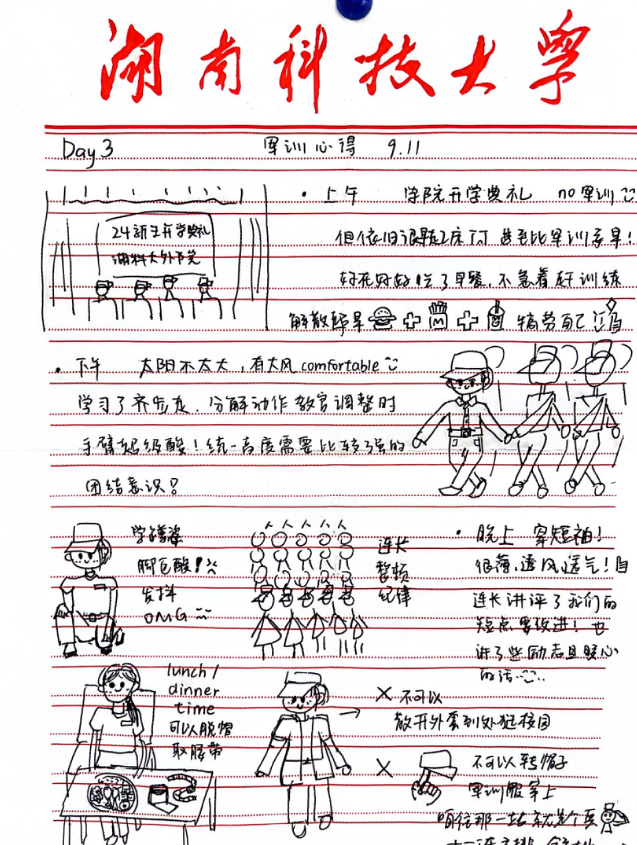 湖南科技大学
Day 3 军训心得 9.11
24新生开学典礼
湖科大外院
• 上午 学院开学典礼 no军训
但依旧很早起床 甚至比军训还早!
好在好好吃了早餐,不急着赶训练
解散后是 + + 犒劳自己
• 下午 太阳不太大,有大风 comfortable
学习了齐步走,分解动作教官调整时
手臂超级酸!统一高度需要比较强的
团结意识?
学蹲姿
脚也酸!
发抖
OMG
连长
整顿
纪律
• 晚上 穿短袖!
很薄,透风透气!
连长讲评了我们的
短点要改进!也
讲了些励志且暖心
的话...
lunch/
dinner
time
可以脱帽
取腰带
× 不可以
敞开外套到处逛校园
× 不可以转帽子
军训服穿上